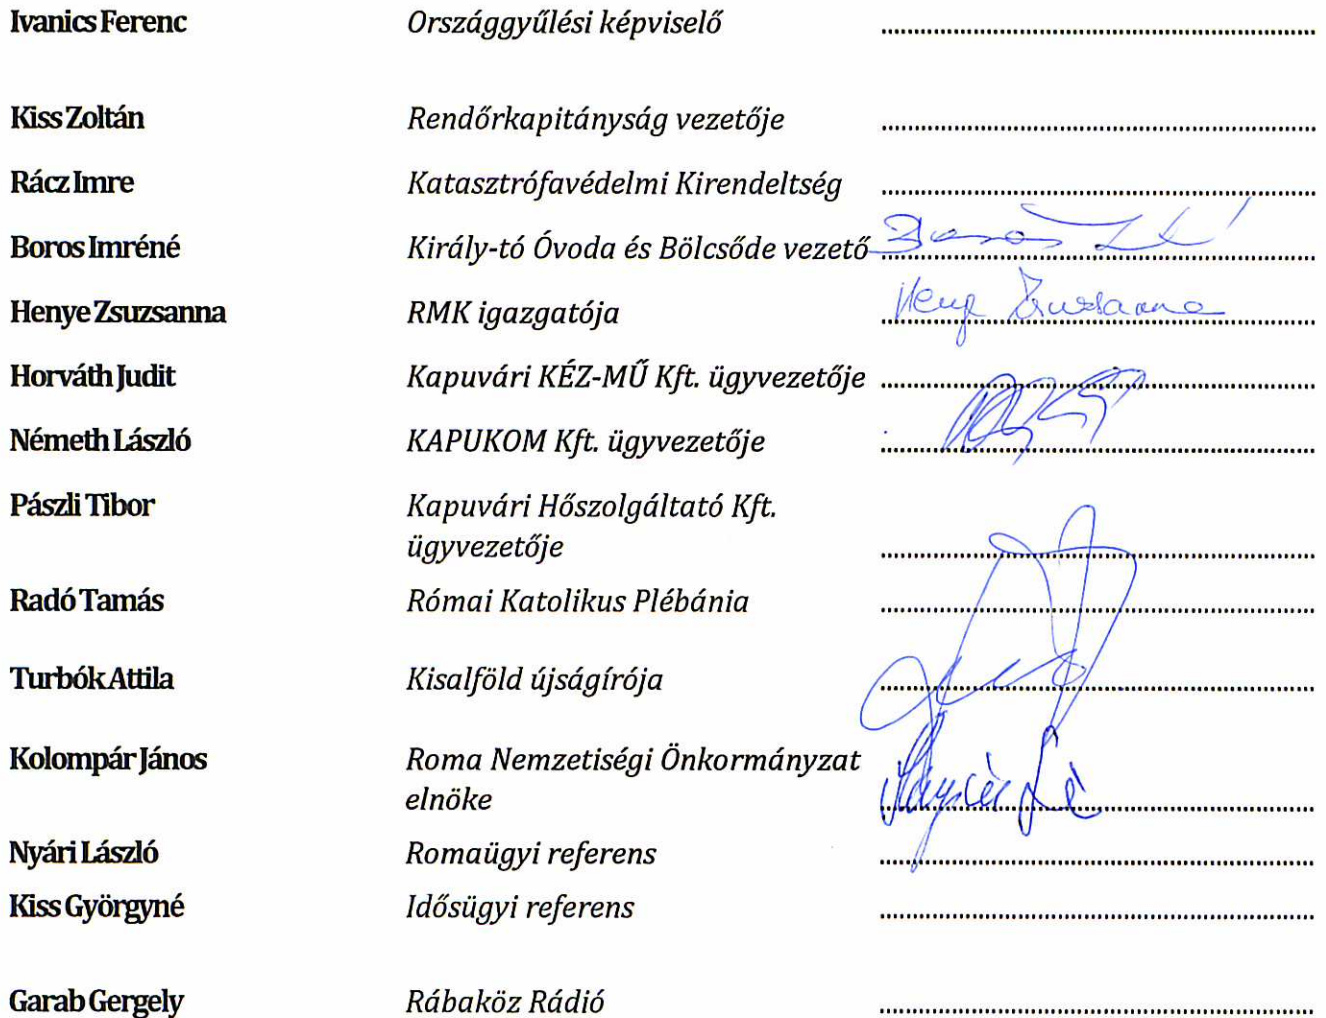 Ivanics Ferenc Országgyűlési képviselő
Kiss Zoltán Rendőrkapitányság vezetője
Rácz Imre Katasztrófavédelmi Kirendeltség
Boros Imréné Király-tó Óvoda és Bölcsőde vezető
Henye Zsuzsanna RMK igazgatója Henye Zsuzsanna
Horváth Judit Kapuvári KÉZ-MŰ Kft. ügyvezetője
Németh László KAPUKOM Kft. ügyvezetője
Pászli Tibor Kapuvári Hőszolgáltató Kft.
ügyvezetője
Radó Tamás Római Katolikus Plébánia
Turbók Attila Kisalföld újságírója
Kolompár János Roma Nemzetiségi Önkormányzat
elnöke
Nyári László Romaügyi referens
Kiss Györgyné Idősügyi referens
Garab Gergely Rábaköz Rádió